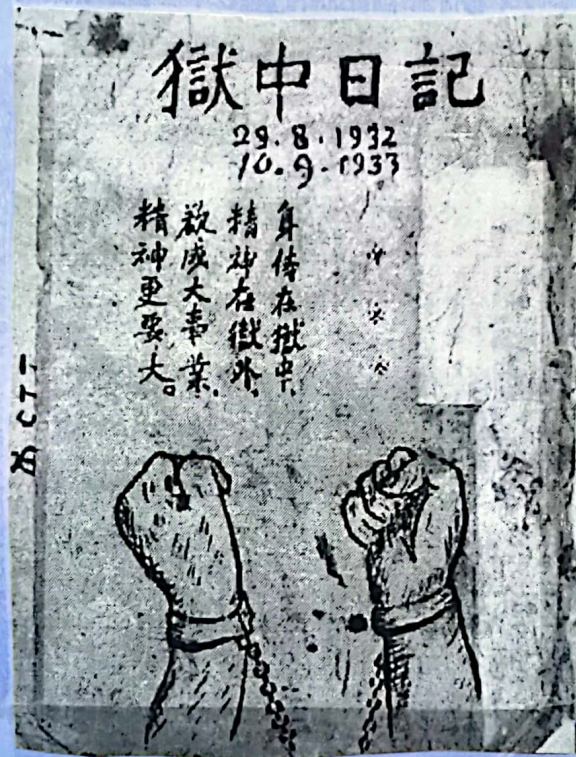 獄中日記
29.8.1932
10.9.1933
身体在獄中，
精神在獄外，
欲成大事業，
精神更要大。